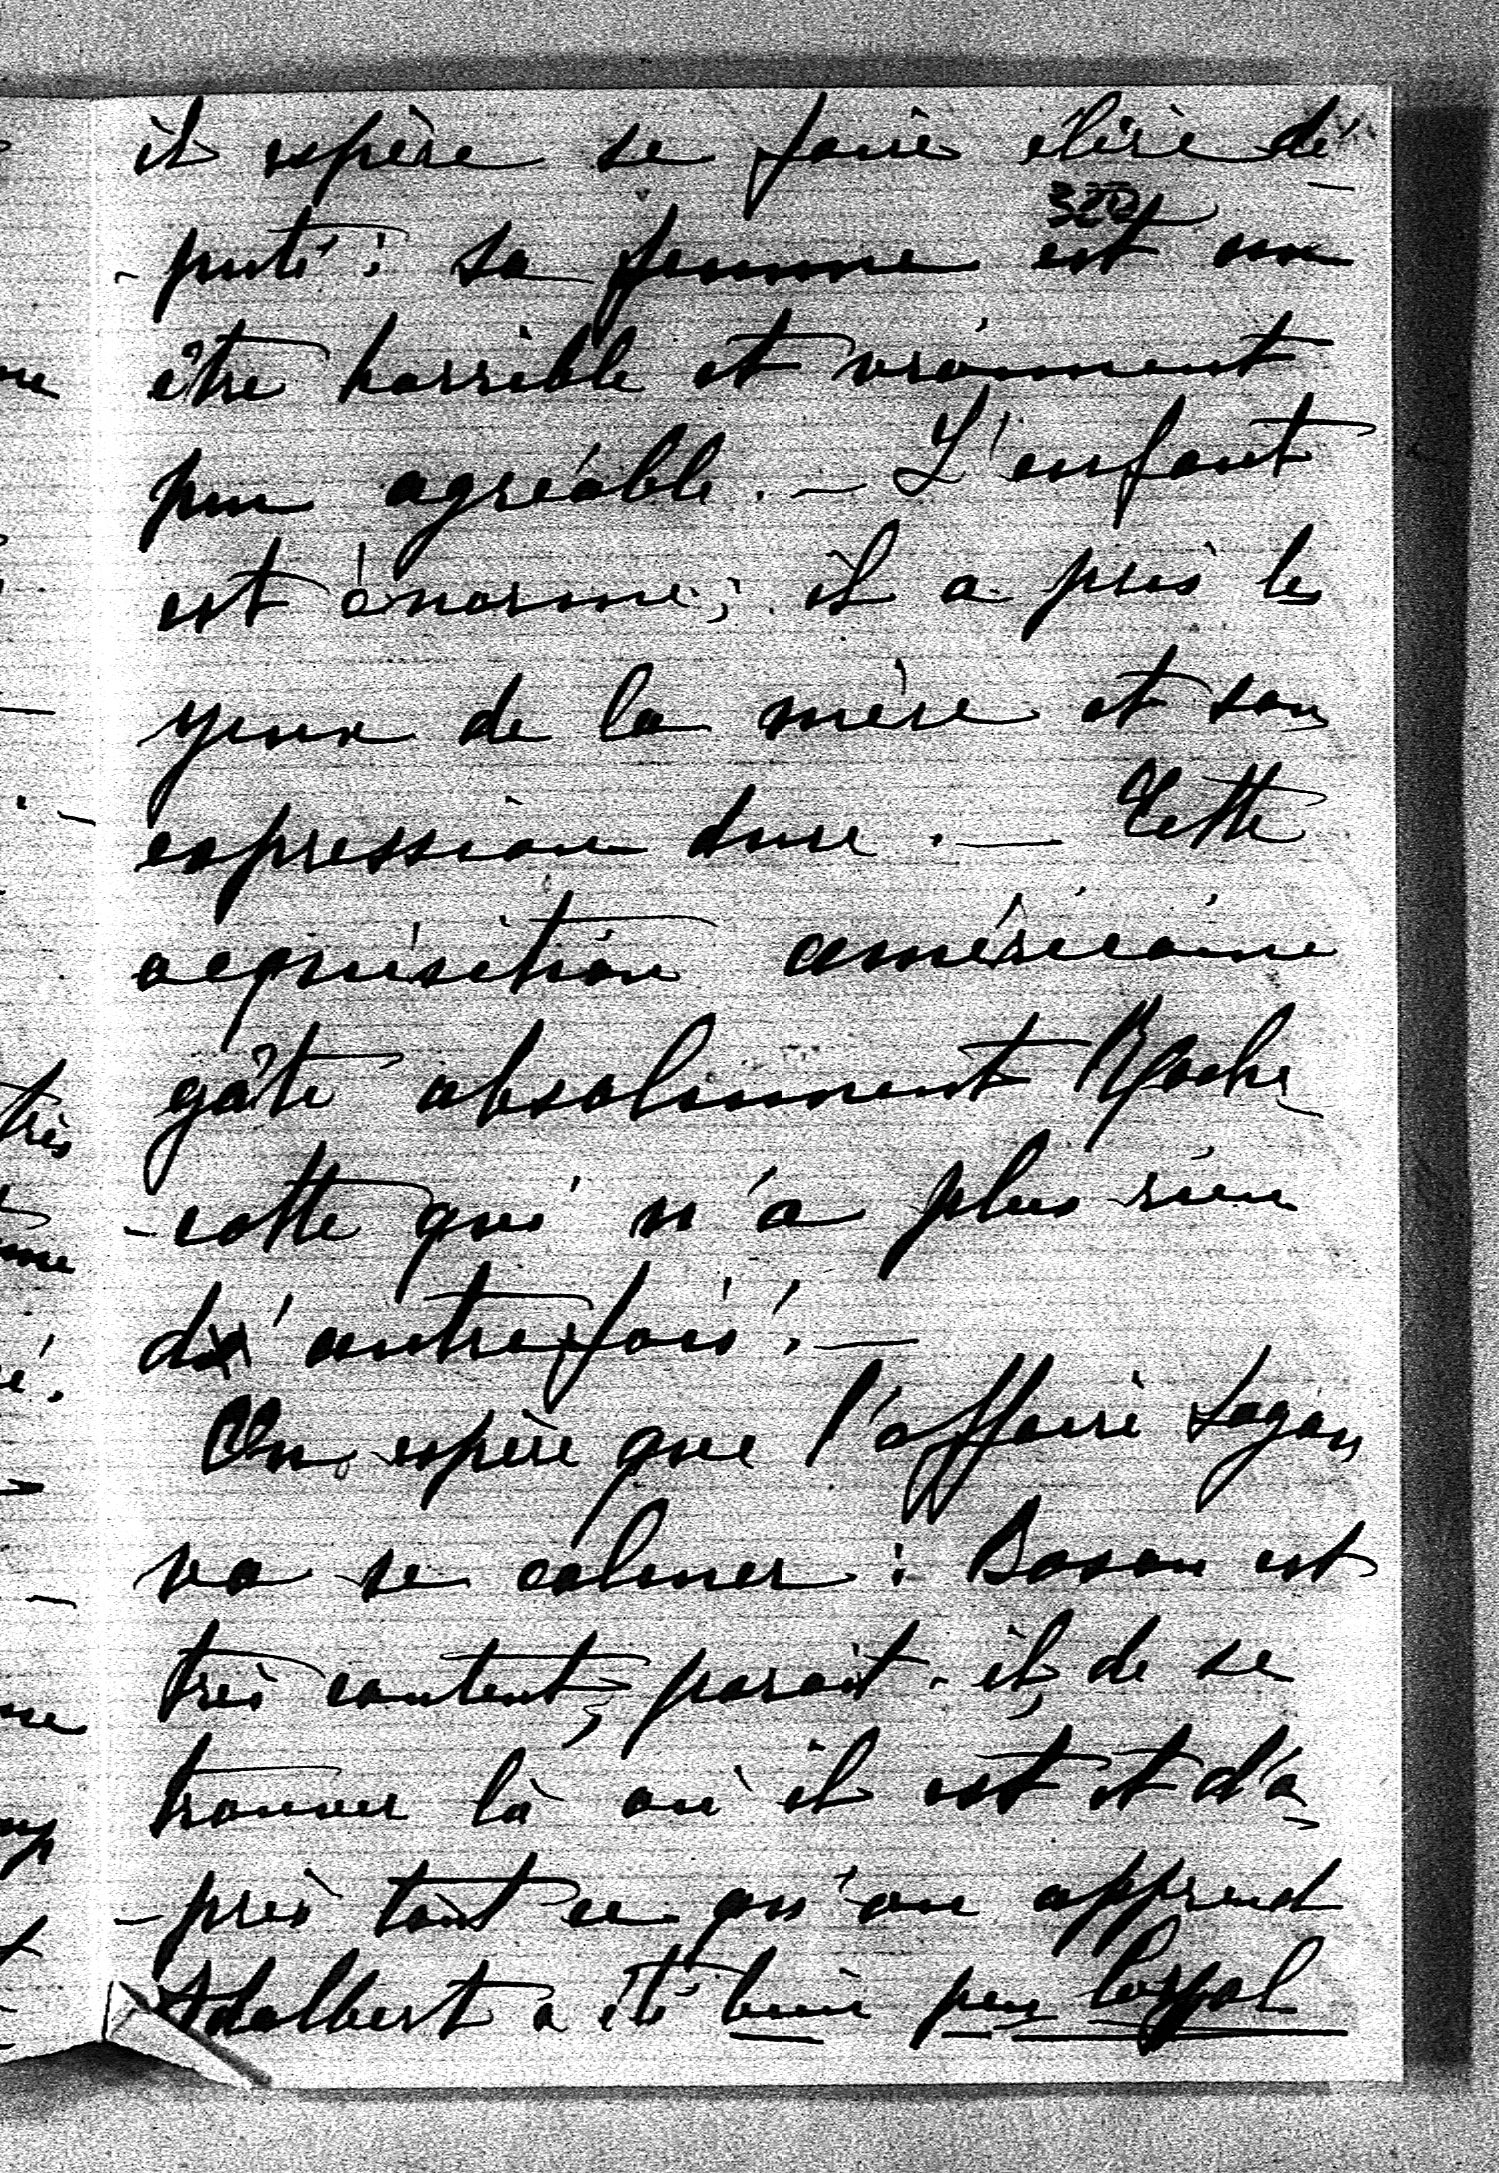 il espère se faire élire dé-
300
-puté : sa femme est un
être horrible et vraiment
peu agréable. — L'enfant
est énorme ; il a pris les
yeux de la mère et son
expression dure. — Cette
acquisition américaine
gâte absolument Roche-
-cotte qui n'a plus rien
d'autrefois. —
On espère que l'affaire Sagan
va se calmer : Boson est
très content, paraît-il, de se
trouver là où il est et d'a-
-près tout ce qu'on apprend
Adalbert a été bien peu loyal